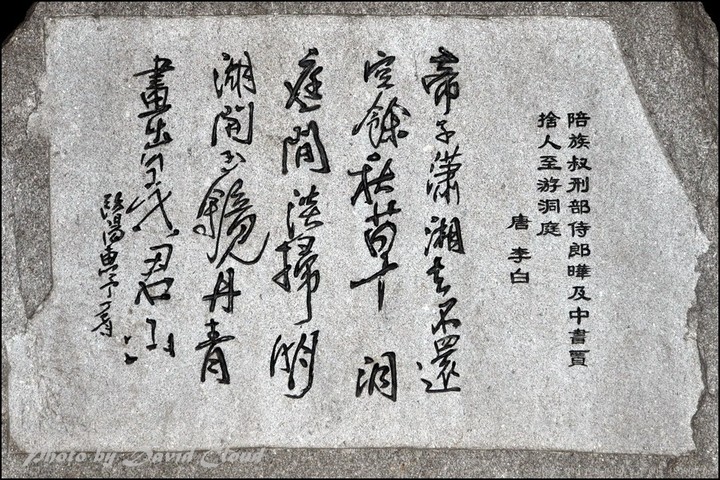 陪族叔刑部侍郎曄及中書賈
捨人至游洞庭
唐 李白
帝子瀟湘去不還
空餘秋草 洞
庭間淡掃明
湖開玉鏡丹青
畫出是君山
Photo by David Cloud